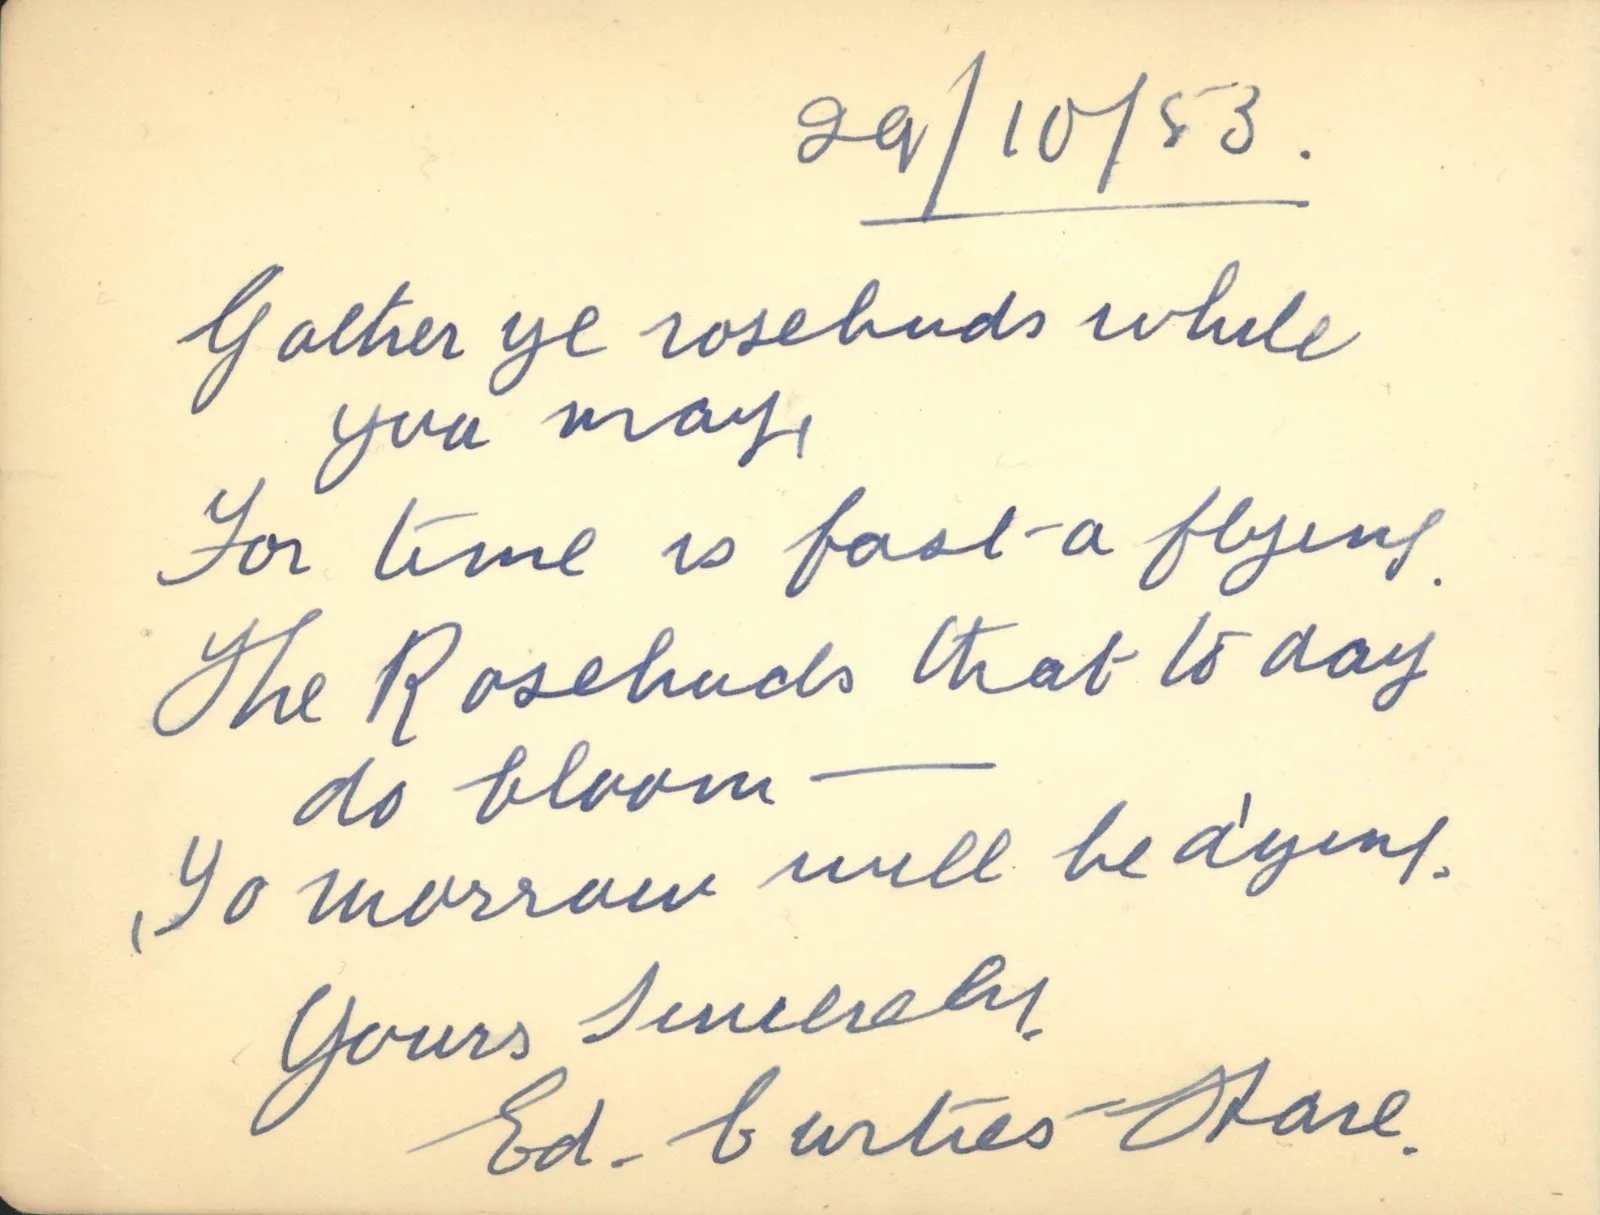 29/10/53.
Gather ye rosebuds while
you may,
For time is fast-a flying.
The Rosebuds that to day
do bloom —
To morrow will be a'dying.
Yours Sincerely,
Ed.